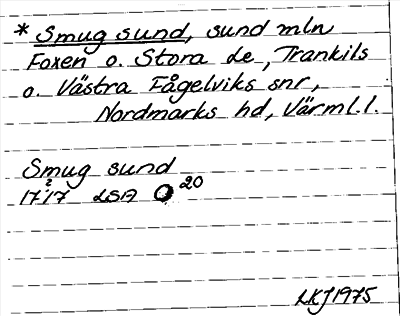 * Smug sund, sund mln
Foxen o. Stora Le, Trankils
o. Västra Fågelviks snr,
Nordmarks hd, Värml.l.
Smug sund
1717 LSA O 20
LKJ 1975